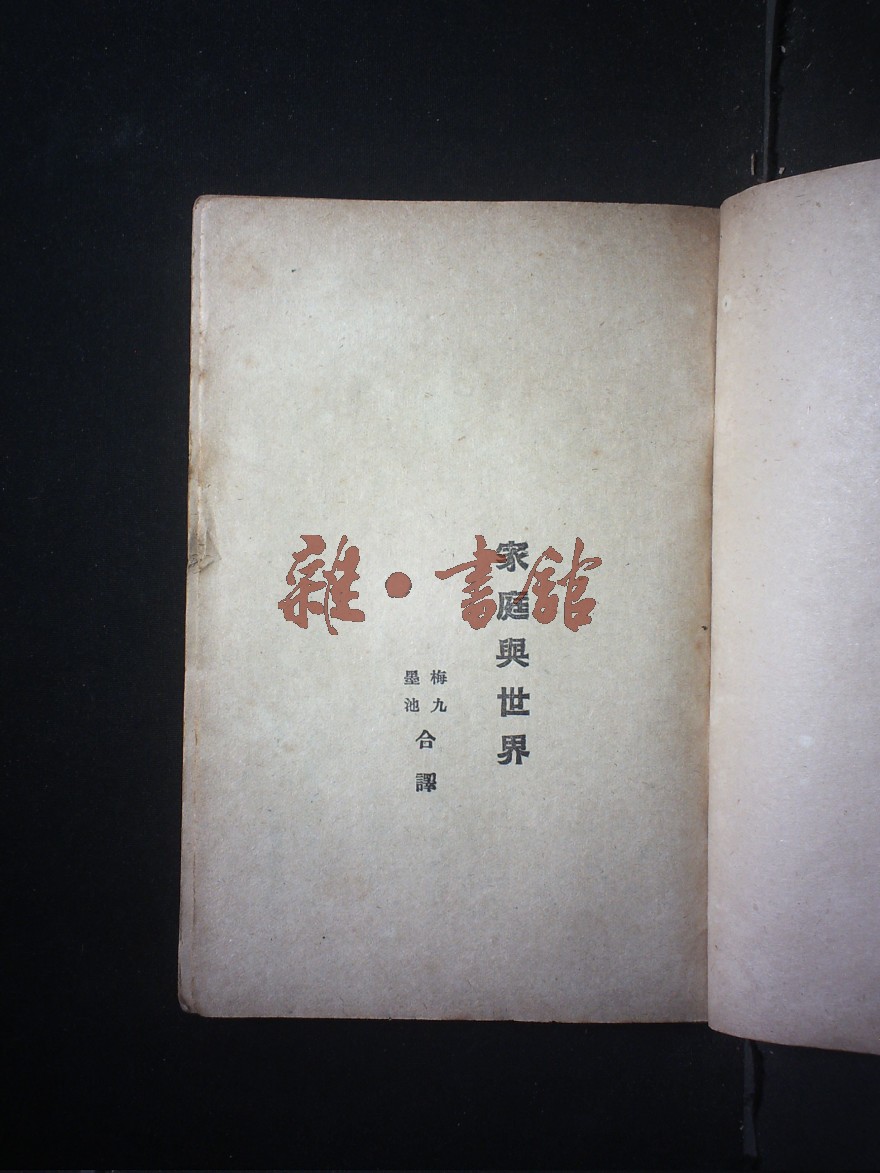 家庭與世界
梅九
墨池
合譯
雜·書館